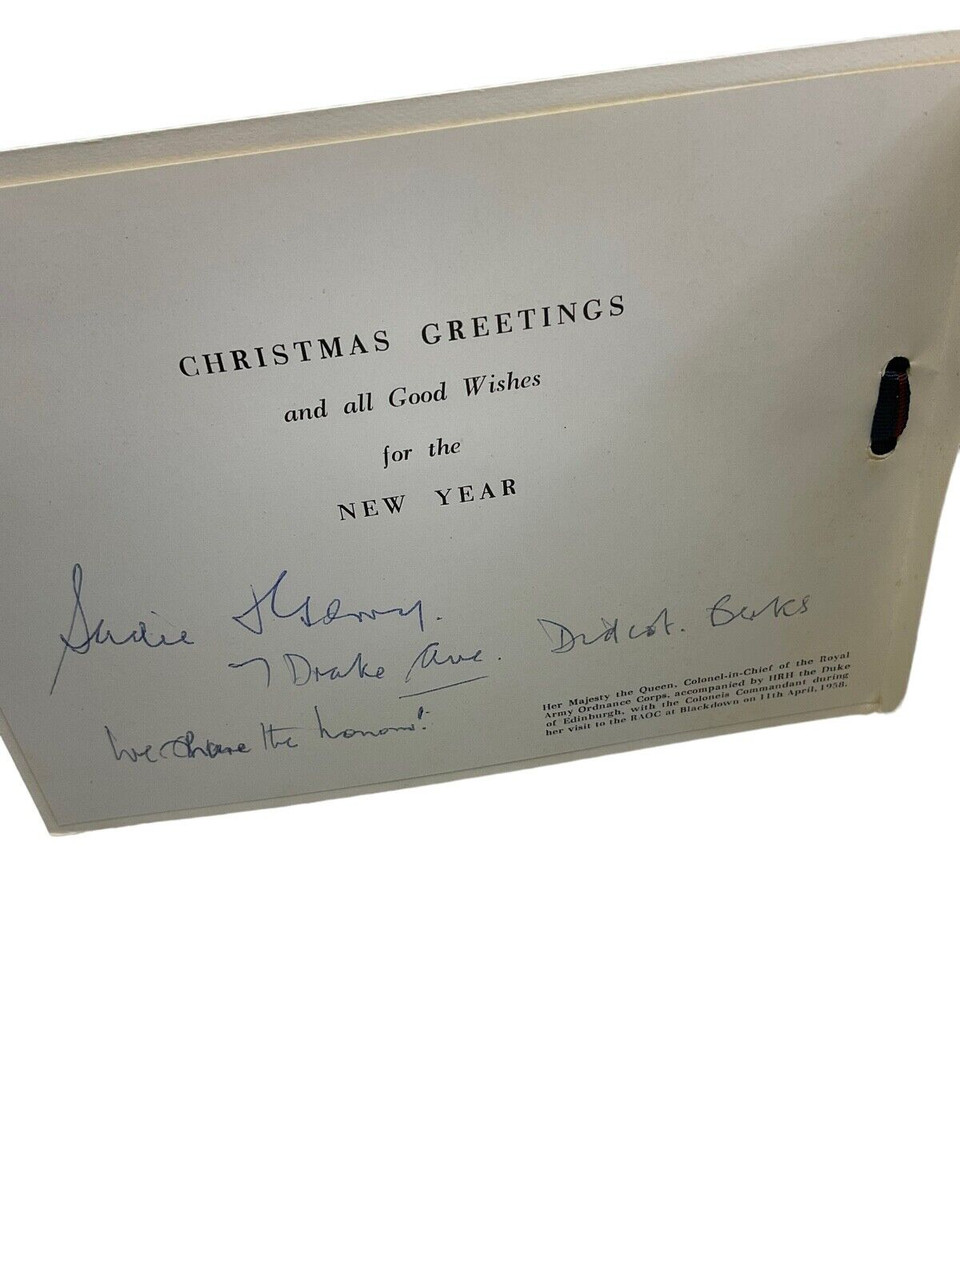 CHRISTMAS GREETINGS
and all Good Wishes
for the
NEW YEAR
Sadie
7 Drake Ave. Didcot. Berks
We share the honour!
Her Majesty the Queen, Colonel-in-Chief of the Royal
Army Ordnance Corps, accompanied by HRH the Duke
of Edinburgh, with the Colonels Commandant during
her visit to the RAOC at Blackdown on 11th April, 1958.